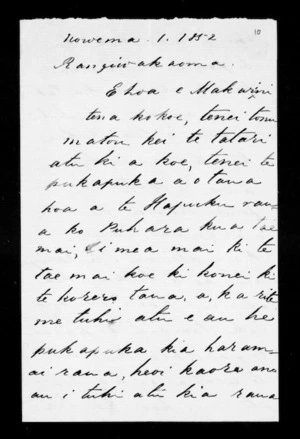 10
Nowema. 1. 1852
Rangiwakaoma.
E hoa e Makarini
tena ko koe, tenei tonu
matou kei te tatari
atu ki a koe, tenei te
pukapuka a o taua
hoa a te Hapuku raua
a ko Puhara kua tae
mai, i mea mai ki te
tae mai koe ki konei ki
te korero taua, a, ka rite
me tuhi atu e au he
pukapuka kia haram-
ai raua, heoi kaore ano
au i tuhi atu kia raua